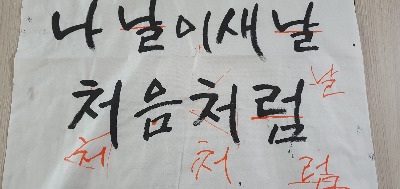 나 날이 새 날
처음처럼
날
처 처 럼